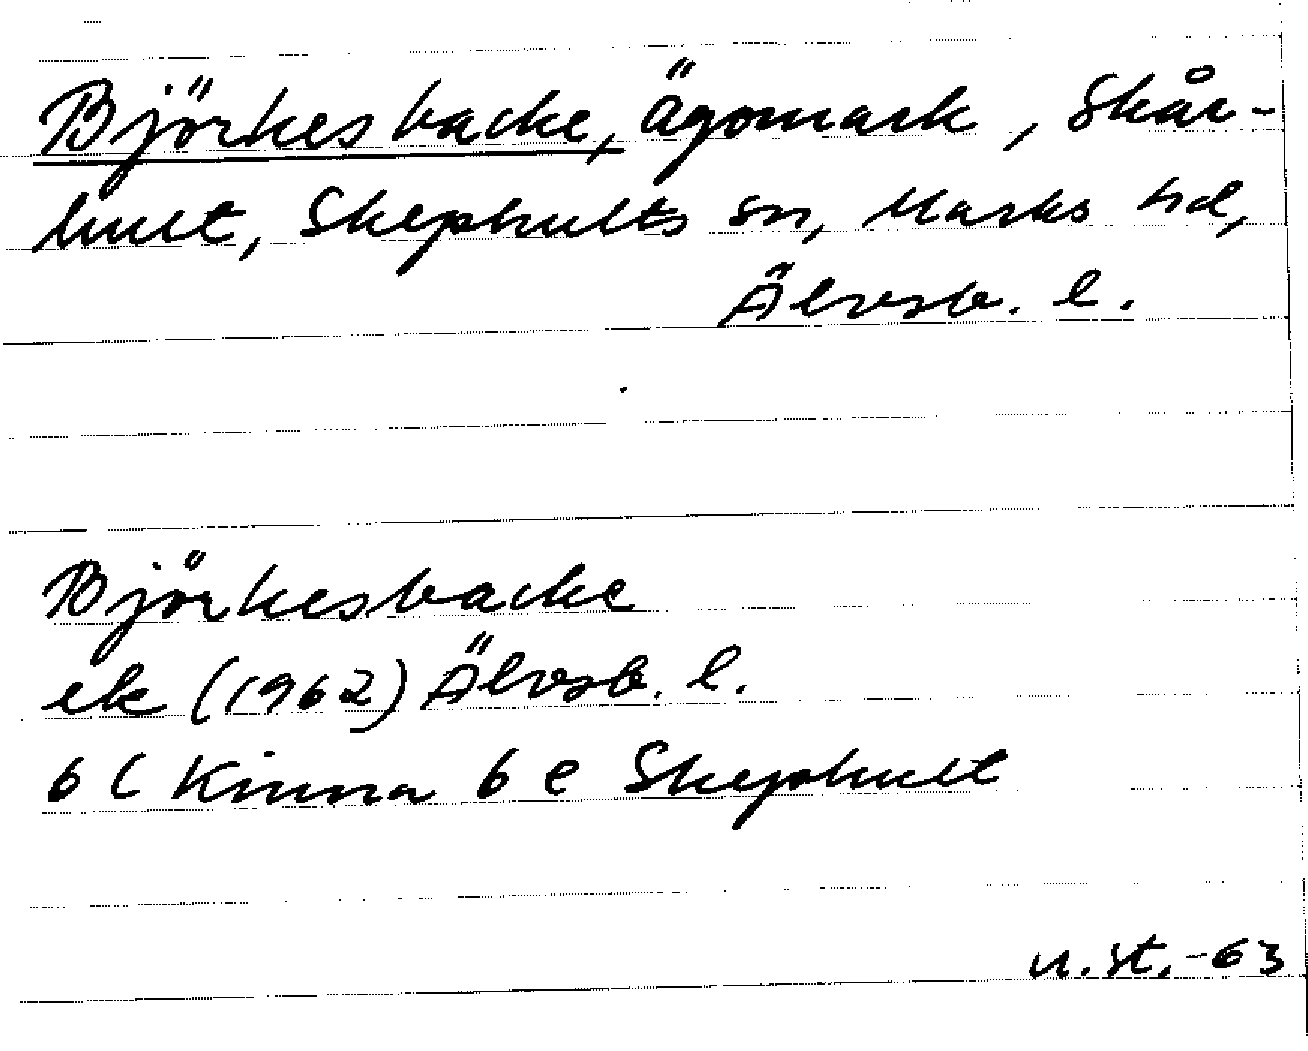 Björkesbacke, ägomark, Skår-
hult, Skephults sn, Marks hd,
Älvsb. l.
Björkesbacke
ek (1962) Älvsb. l.
6 C Kinna 6 e Skephult
u.st.-63